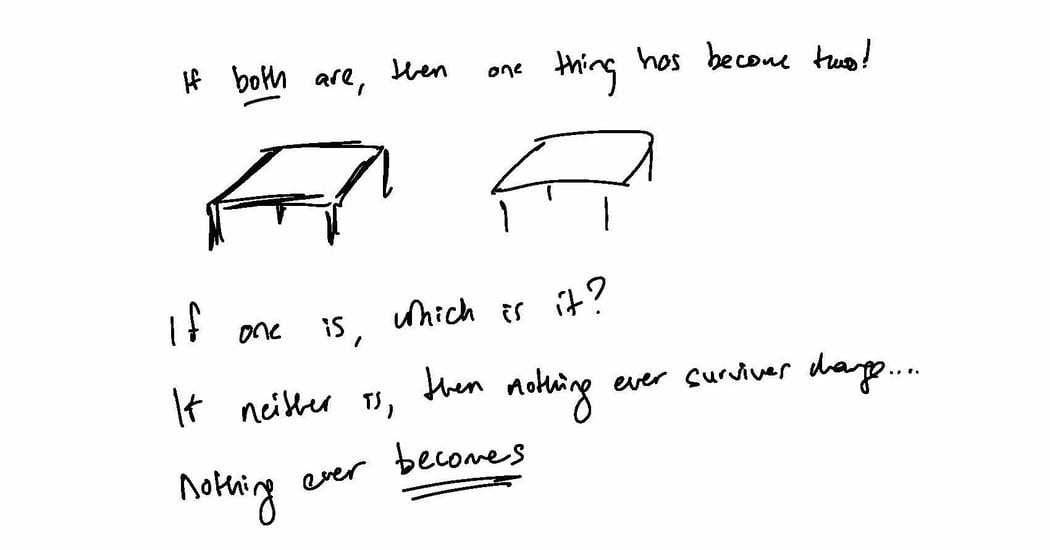 If both are, then one thing has become two!
If one is, which is it?
If neither is, then nothing ever survives change....
nothing ever becomes